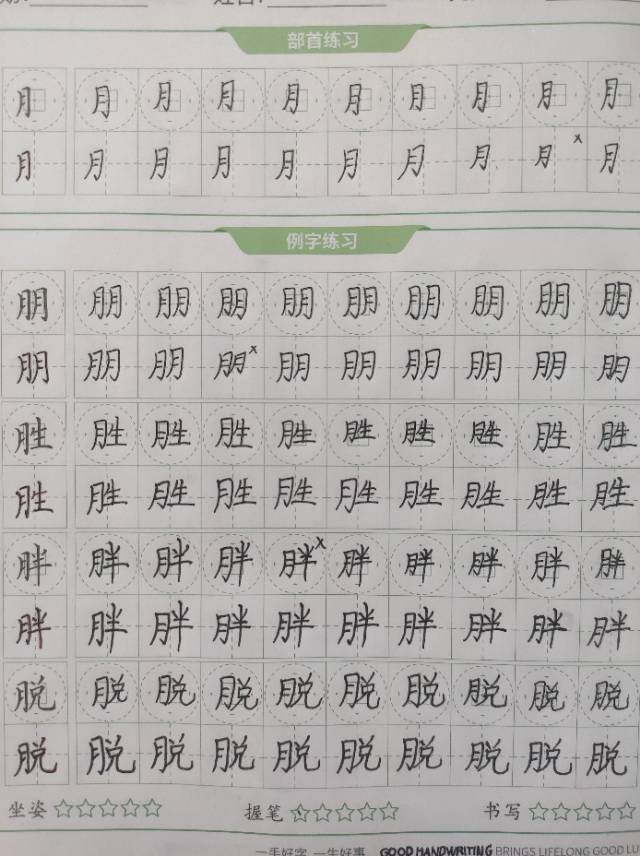 部首练习
月 月 月 月 月 月 月 月 月 月
月 月 月 月 月 月 月 月 月 x 月
例字练习
朋 朋 朋 朋 朋 朋 朋 朋 朋 朋
朋 朋 朋 朋 x 朋 朋 朋 朋 朋 朋
胜 胜 胜 胜 胜 胜 胜 胜 胜 胜
胜 胜 胜 胜 胜 胜 胜 胜 胜 胜
胖 胖 胖 胖 胖 x 胖 胖 胖 胖 胖
胖 胖 胖 胖 胖 胖 胖 胖 胖 胖
脱 脱 脱 脱 脱 脱 脱 脱 脱 脱
脱 脱 脱 脱 脱 脱 脱 脱 脱 脱
坐姿 ☆☆☆☆☆ 握笔 ☆☆☆☆☆ 书写 ☆☆☆☆☆
一手好字 一生好事 GOOD HANDWRITING BRINGS LIFELONG GOOD LU